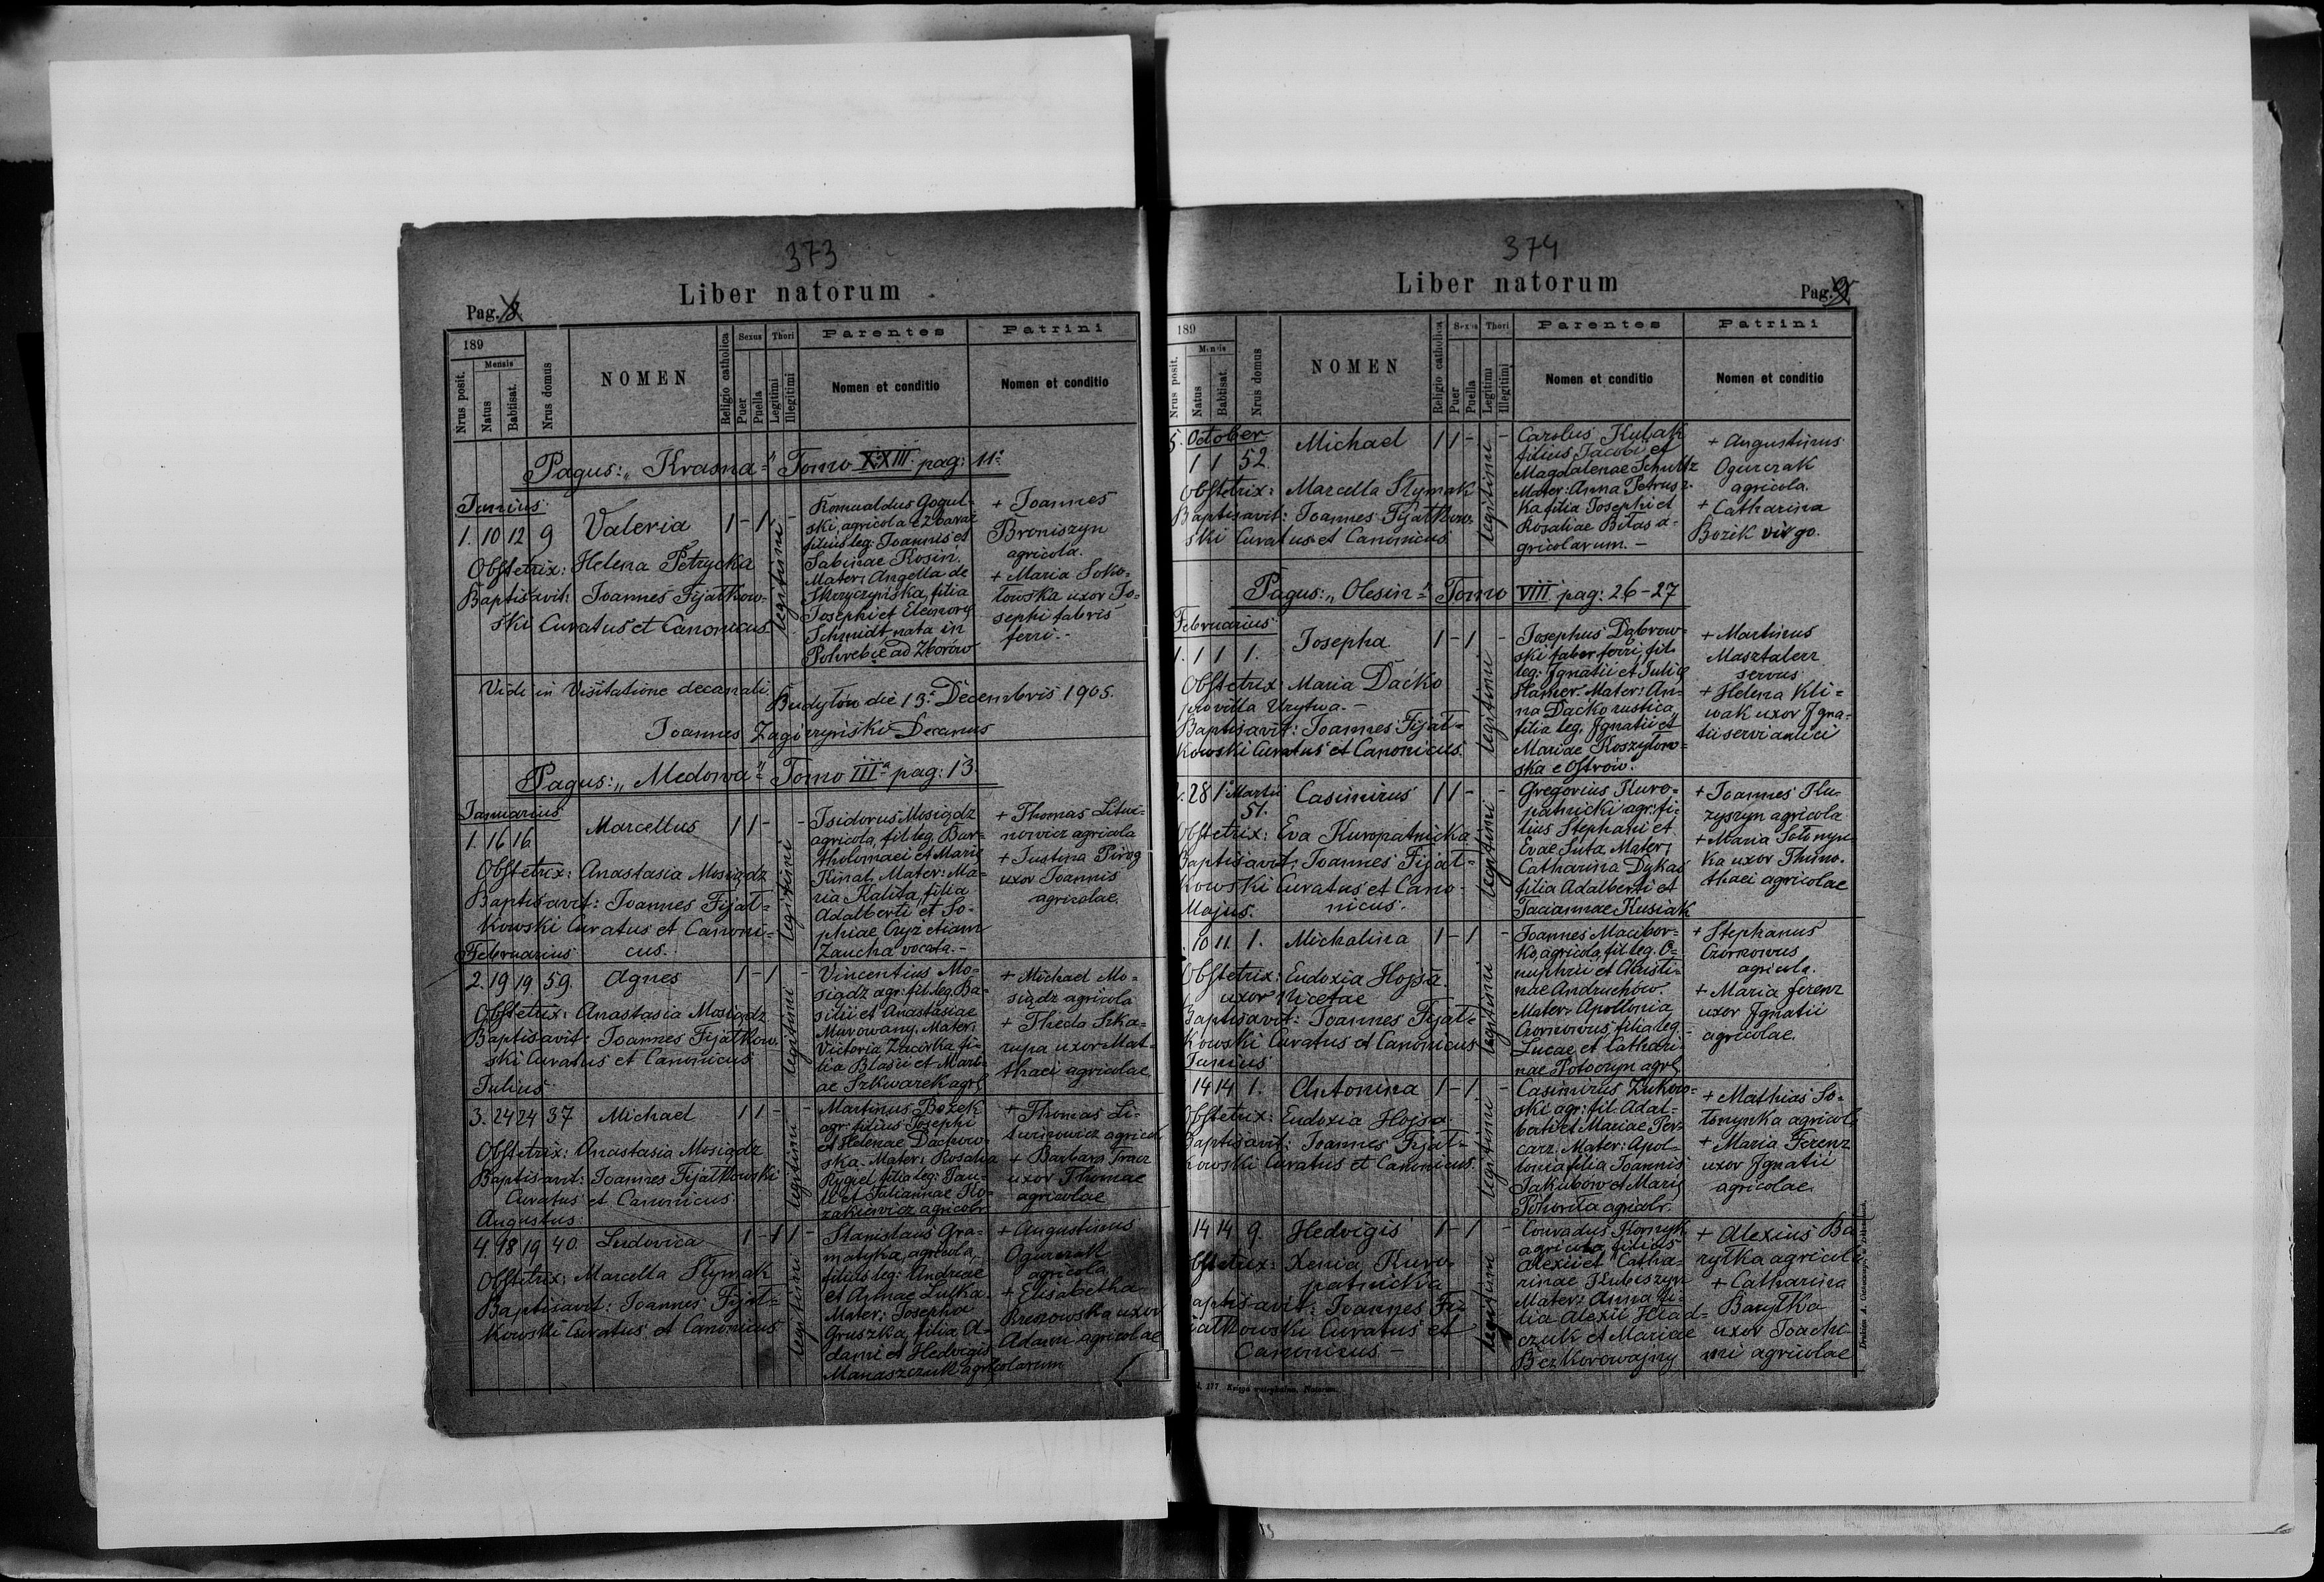 373
Liber natorum
Pag. 8
189
Mensis
Nrus posit.
Natus
Babtisat.
Nrus domus
NOMEN
Religio catholica
Sexus
Puer
Puella
Thori
Legitimi
Illegitimi
Parentes
Nomen et conditio
Patrini
Nomen et conditio
Pagus: „Krasna" Tomo XXIII. pag: 11.
Junius
1. 10 12 9 Valeria 1 - 1 -
legitimi
Obstetrix: Helena Petrycka
Baptisavit: Joannes Fijałkow-
ski Curatus et Canonicus
Romualdus Gogul-
ski, agricola ez
filius leg: Joannis et
Sabinae Rosin.
Mater: Angella de
Skrzyczyńska, filia
Josephi et Eleonorę
Schmidt nata in
Pohrebce ad Zborów
+ Joannes
Broniszyn
agricola.
+ Maria Soko-
łowska uxor Jo-
sephi fabris
ferri.-
Vidi in Visitatione decanali
Budyłów die 13. Decembris 1905.
Joannes Decanus
Pagus: „Medowa" Tomo III pag: 13
Januarius
1. 16 16 Marcellus 1 1 - -
legitimi
Obstetrix: Anastasia Mosiądz
Baptisavit: Joannes Fijał-
kowski Curatus et Canoni-
cus.
Isidorus Mosiądz
agricola, fil. leg. Bar-
tholomaei et Marię
Kinal, Mater: Ma-
ria Kalita, filia
Adalberti et So-
phiae Cryz etiam
Zaucha vocata.-
+ Thomas Litwi-
nowicz agricola
+ Justina Pirog
uxor Joannis
agricolae.
Februarius
2. 19 19 59. Agnes 1 - 1 -
legitimi
Obstetrix: Anastasia Mosiądz
Baptisavit: Joannes Fijałkow-
ski Curatus et Canonicus
Vincentius Mo-
siądz agr: fil. leg. Ba-
silii et Anastasiae
Murowany, Mater:
Victoria Zacórka, fi-
lia Blasii et Mari-
ae Szkwarek agrę
+ Michael Mo-
siądz agricola
+ Theda Ska-
rupa uxor Mat-
thaei agricolae
Julius
3. 24 24 37 Michael 1 1 - -
legitimi
Obstetrix: Anastasia Mosiądz
Baptisavit: Joannes Fijałkowski
Curatus et Canonicus
Martinus Bożek
agr: filius Josephi
et Helenae Dachow-
ska. Mater: Rosalia
Rygiel filia leg: Pau-
li et Juliannae Ko-
zakiewicz agricolr.
+ Thomas Li-
twinowicz agricol
+ Barbara Tracz
uxor Thomae
agricolae
Augustus
4. 18 19 40. Ludovica 1 - 1 1 -
legitimi
Obstetrix: Marcella Slymak
Baptisavit: Joannes Fijał-
kowski Curatus et Canonicus
Stanislaus Gra-
matyka, agricola,
filius leg: Andreae
et Annae Lutka.
Mater: Josepha
Gruszka, filia A-
dami et Hedvigis
Manaszczuk agricolarum
+ Augustinus
Ogurczak
agricola
+ Elisabetha
Brezowska uxor
Adami agricolae
374
Liber natorum
Pag. 9
189
Mensis
Nrus posit.
Natus
Babtisat.
Nrus domus
NOMEN
Religio catholica
Sexus
Puer
Puella
Thori
Legitimi
Illegitimi
Parentes
Nomen et conditio
Patrini
Nomen et conditio
5. October
1 1 52. Michael 1 1 - -
legitimi
Obstetrix: Marcella Slymak
Baptisavit: Joannes Fijałkow-
ski Curatus et Canonicus
Carolus Kubak
filius Jacobi et
Magdalenae Schultz
Mater: Anna Petrusz-
ka filia Josephi et
Rosaliae Bitas a-
gricolarum.-
+ Augustinus
Ogurczak
agricola.
+ Catharina
Bozek virgo.
Pagus: „Olesin" Tomo VIII. pag: 26-27
Februarius
1. 1 1 1. Josepha 1 - 1 -
legitimi
Obstetrix: Maria Daćko
pro villa Urytwa.-
Baptisavit: Joannes Fijał-
kowski Curatus et Canonicus.
Josephus Dąbrow-
ski faber ferri, fil.
leg: Ignatii et Julię
Hamer. Mater: An-
na Daćko rustica,
filia leg. Ignatii et
Mariae Koszyłow-
ska e Ostrów.
+ Martinus
Masztalerz
servus
+ Helena Kli-
wak uxor Igna-
tii servi aulici
28 1 Martii
51. Casimirus 1 1 - -
legitimi
Obstetrix: Eva Kuropatnicka
Baptisavit: Joannes Fijał-
kowski Curatus et Cano-
nicus.
Gregorius Kuro-
patnicki agr: fi-
lius Stephani et
Evae Suta. Mater:
Catharina Dykas
filia Adalberti et
Taciannae Kusiak
+ Joannes Hu-
zyszyn agricola
+ Maria
ka uxor Thimo-
thaei agricolae
Majus.
10 11 1. Michalina 1 - 1 -
legitimi
Obstetrix: Eudoxia Hojsa.
uxor Nicetae
Baptisavit: Joannes Fijał-
kowski Curatus et Canonicus
Joannes Macibor-
ko, agricola, fil. leg. O-
nuphrii et Christi-
nae Andruchów.
Mater: Apollonia
Czornowus filia leg.
Lucae et Cathari-
nae Potoczyn agrę
+ Stephanus
Czornowus
agricola.
+ Maria Ferenz
uxor Ignatii
agricolae.
Junius
14 14 1. Antonina 1 - 1 -
legitimi
Obstetrix: Eudoxia Hojsa
Baptisavit: Joannes Fijał-
kowski Curatus et Canonicus.
Casimirus Żukow-
ski agr: fil. Adal-
berti et Mariae Per-
carz. Mater: Apol-
lonia filia Joannis
Jakubow et Marię
Pohorita agricolr.
+ Mathias So-
łomynka agricol
+ Maria Ferenz
uxor Ignatii
agricolae
14 14 9. Hedvigis 1 - 1 -
legitimi
Obstetrix: Xenia Kuro-
patnicka
Baptisavit: Joannes Fi-
jałkowski Curatus et
Canonicus -
Conradus Kornyk
agricola filius
Alexii et Catha-
rinae Kubiszyn
Mater: Anna fi-
lia Alexii Hład-
czuk et Mariae
Bezkorowajny
+ Alexius Ba
ryłka agricola
+ Catharina
Baryłka
uxor Joachi-
mi agricolae